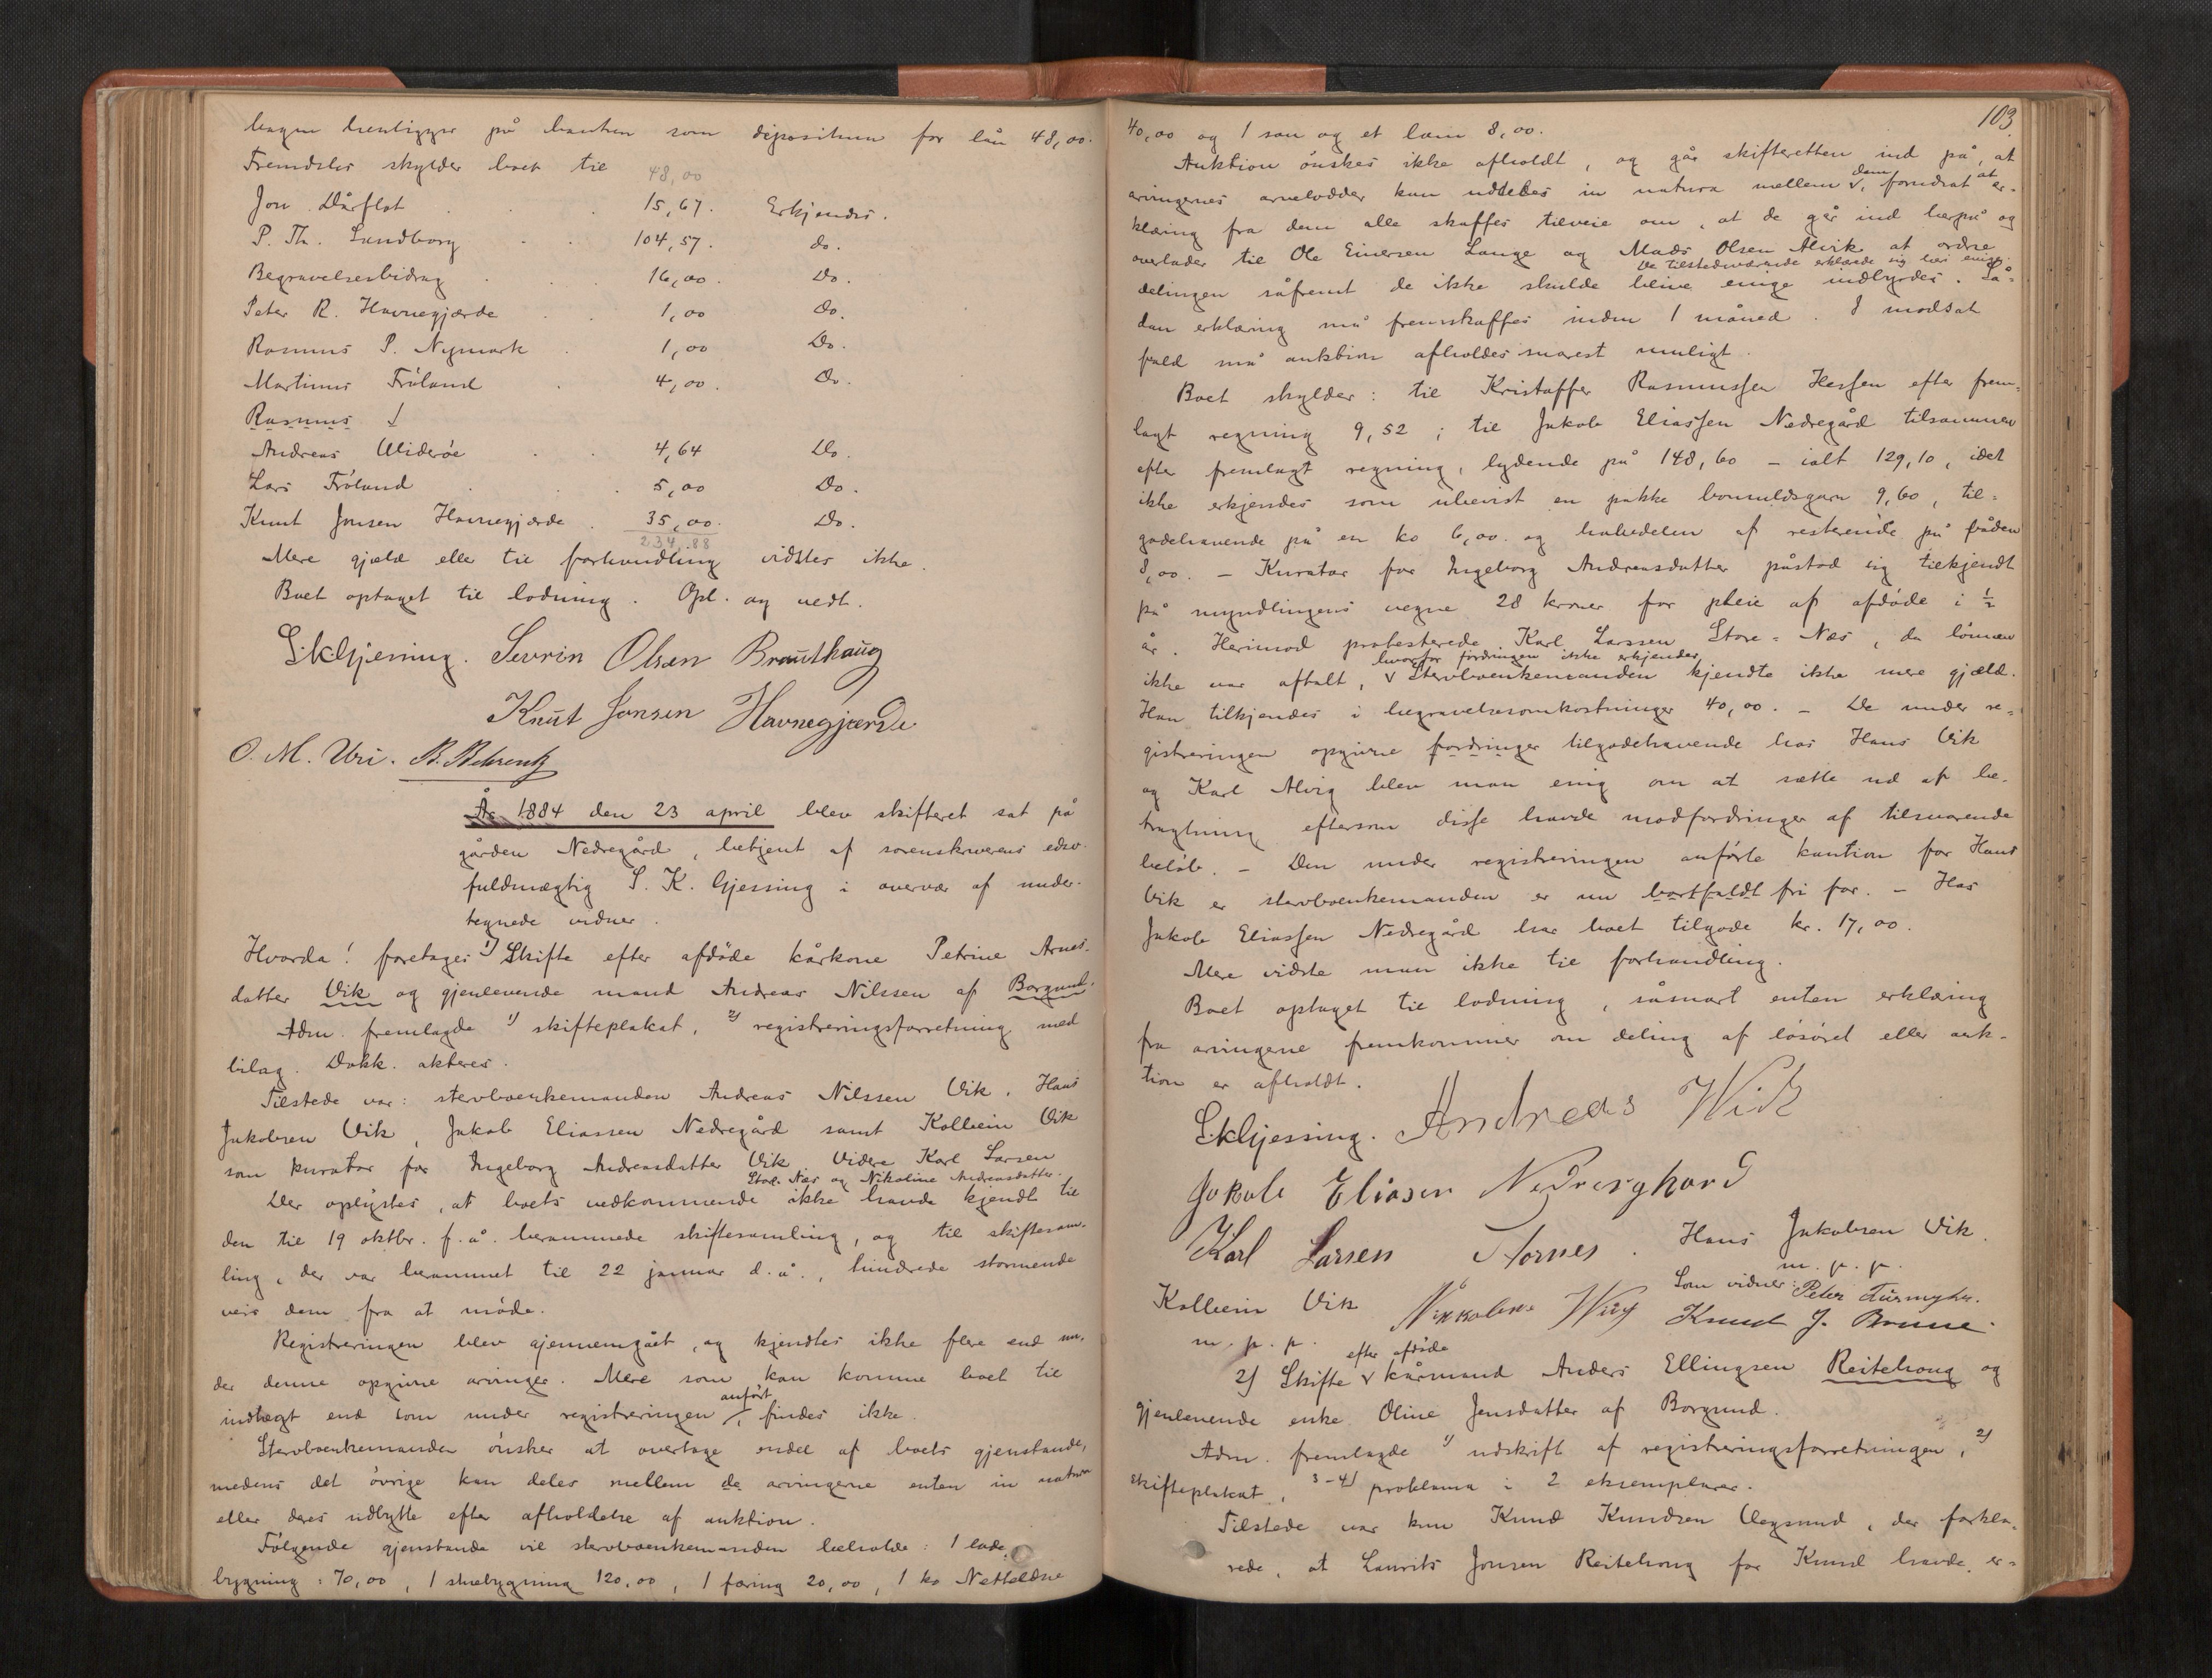 bogen henligger på banken som depositum for lån 48,00.
Fremdeles skylder boet til 48,00
Jon Dårflot 15,67. Erkjendes.
P. Th. Sundborg 104,57. do.
Begravelsesbidrag 16,00. Do.
Peter R. Havnegjærde 1,00 Do.
Rasmus P. Nymark 1,00 Do.
Martinus Fröland 4,00. Do.
Rasmus
Andreas Ulideröe 4,64 Do.
Lars Fröland 5,00 Do.
Knut Jonsen Havnegjærde. 35,00. Do.
234.88
Mere gjæld eller til forhandling vidstes ikke.
Boet optaget til lodning. Opl. og vedt.
S.K.Gjessing. Sevrin Olsen Brauthaug
Knut Jonsen Havnegjærde
O. M. Uri. B. Behrentz
År 1884 den 23 april blev skifteret sat på
gården Nedregård, betjent af sorenskriverens edsv.
fuldmægtig S. K. Gjessing i overvær af under-
tegnede vidner.
Hvorda! foretages 1) Skifte efter afdöde kårkone Petrine Arnes-
datter Vik og gjenlevende mand Andreas Nilssen af Borgund.
Adm. fremlagde 1) skifteplakat, 2) registreringsforretning med
bilag. Dokk. akteres.
Tilstede var: stervboenkemanden Andreas Nilssen Vik, Hans
Jakobsen Vik, Jakob Eliassen Nedregård samt Kolbein Vik
som kurator for Ingeborg Andreasdatter Vik Videre Karl Larsen
Store-Næs og Nikoline Andreasdatter.
Der oplystes, at boets vedkommende ikke havde kjendt til
den til 19 oktbr. f. å. berammede skiftesamling, og til skiftesam-
ling, der var berammet til 22 januar d. å., hindrede stormende
veir dem fra at möde.
Registreringen blev gjennemgået, og kjendtes ikke flere end un-
der denne opgivne arvinger. Mere som kan komme boet til
indtægt end som under registreringen anfört, findes ikke.
Stervboenkemanden önsker at overtage endel af boets gjenstande,
medens det övrige kan deles mellem de arvingerne enten in natura
eller deres udbytte efter afholdelse af auktion.
Fölgende gjenstande vil stervboenkemanden beholde: 1 lade-
bygning: 70,00, 1 stuebygning 120,00, 1 færing 20,00, 1 ko
103
40,00 og 1 sau og et lam 8,00.
Auktion önskes ikke afholdt, og går skifteretten ind på, at
arvingernes arvelodder kan uddeles in natura mellem dem, forudsat at er-
klæring fra dem alle skaffes tilveie om, at de går ind herpå og
overlader til Ole Einersen Lange og Mads Olsen Alvik at ordne
De tilstedeværende erklærede sig heri enige.
delingen såfremt de ikke skulde blive enige indbyrdes. Så-
dan erklæring må fremskaffes inden 1 måned. I modsat
fald må auktion afholdes snarest muligt.
Boet skylder: til Kristoffer Rasmussen Hessen efter frem-
lagt regning 9,52; til Jakob Eliassen Nedregård tilsammen
efter fremlagt regning, lydende på 148,60 – ialt 129,10, idet
ikke erkjendes som ubevist en pakke bomuldsgarn 9,60, til-
godehavende på en ko 6,00. og halvedelen af resterende på båden
8,00. – Kurator for Ingeborg Andreasdatter påstod sig tilkjendt
på myndlingens vegne 28 kroner for pleie af afdöde i ½
år. Herimod protesterede Karl Larssen Store-Næs, da lönnen
hvorfor fordringen ikke erkjendes
ikke var aftalt, v Stervboenkemanden kjendte ikke mere gjæld.
Han tilkjendes i begravelsesomkostninger 40,00. – De under re-
gistreringen opgivne fordringer tilgodehavende hos Hans Vik
og Karl Alvig blev man enig om at sætte ud af be-
tragtning eftersom disse havde modfordringer af tilsvarende
belöb. – Den under registreringen anförte kaution for Hans
Vik er stervboenkemanden er nu bortfaldt fri for. – Hos
Jakob Eliassen Nedregård har boet tilgode kr. 17,00.
Mere vidste man ikke til forhandling.
Boet optaget til lodning, såsnart enten erklæring
fra arvingerne fremkommer om deling af lösöret eller auk-
tion er afholdt.
S.K.Gjessing. Andreas Wik
Jakob Eliasen Nedreghard
Karl Larsen Stornes. Hans Jakobsen Vik.
m. p. p.
Som vidner:
Kolbein Vik Nikkoline Wiig Knud J. Brune.
m. p. p.
efter afdöde
2) Skifte v kårmand Anders Ellingsen Reitehoug og
gjenlevende enke Oline Jensdatter af Borgund.
Adm. fremlagde 1) udskrift af registreringsforretningen, 2)
skifteplakat, 3-4) proklama i 2 eksemplarer.
Tilstede var kun Knud Knudsen Vegsund, der forkla-
rede, at Laurits Jonsen Reitehoug for Knud havde er-